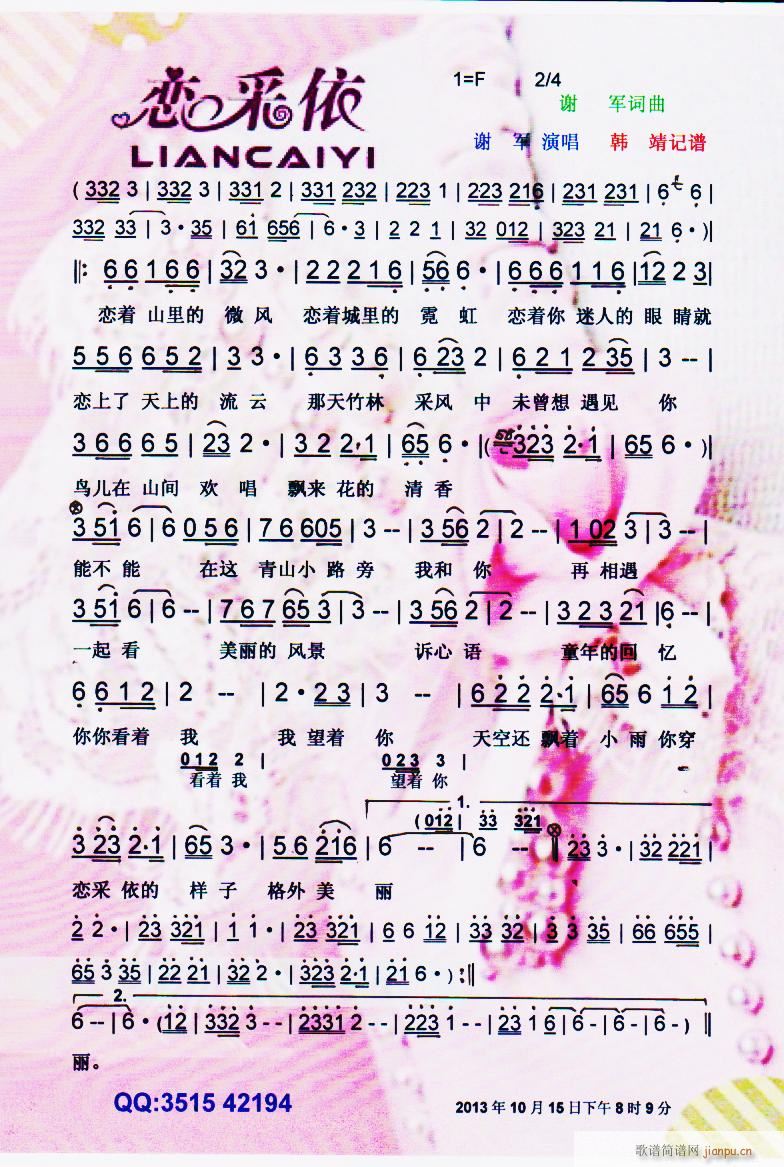 恋采依
LIANCAIYI
1=F 2/4
谢 军词曲
谢 军 演唱 韩 靖记谱
( 332 3 | 332 3 | 331 2 | 331 232 | 223 1 | 223 216 | 231 231 | 6 6 |
332 33 | 3· 35 | 61 656 | 6· 3 | 2 2 1 | 32 012 | 323 21 | 21 6· )|
|: 6 6 1 6 6 | 32 3· | 2 2 2 1 6 | 56 6· | 6 6 6 1 1 6 | 12 2 3 |
恋着 山里的 微风 恋着城里的 霓 虹 恋着你 迷人的 眼 睛就
5 5 6 6 5 2 | 3 3· | 6 3 3 6 | 6 23 2 | 6 2 1 2 35 | 3 -- |
恋上了 天上的 流 云 那天竹林 采风 中 未曾想 遇见 你
3 6 6 6 5 | 23 2· | 3 2 2·1 | 65 6· |( 323 2·1 | 65 6· )|
鸟儿在 山间 欢 唱 飘来 花的 清 香
3 51 6 | 6 0 5 6 | 7 6 605 | 3 -- | 3 56 2 | 2 -- | 1 02 3 | 3 -- |
能不 能 在这 青山小 路 旁 我和 你 再 相遇
3 51 6 | 6 -- | 7 6 7 65 3 | 3 -- | 3 56 2 | 2 -- | 3 2 3 21 | 6 --
一起 看 美丽的 风景 诉心 语 童年的回 忆
6 6 1 2 | 2 -- | 2· 23 | 3 -- | 6 2 2 2·1 | 65 6 1 2 |
你你看着 我 我 望着 你 天空还 飘着 小 雨 你穿
012 2 | 023 3 |
看着 我 望着 你
1.
( 012 | 33 321
3 23 2·1 | 65 3· | 5 6 216 | 6 -- | 6 -- 23 3· | 32 221 |
恋采 依的 样 子 格外 美 丽
2 2· | 23 321 | 1 1· | 23 321 | 6 6 12 | 33 32 | 3 3 35 | 66 655 |
65 3 35 | 22 21 | 32 2· | 323 2·1 | 21 6· ) :||
2.
6 -- | 6· (12 | 332 3 -- | 2331 2 -- | 223 1 -- | 23 1 6 | 6 - | 6 - | 6 - ) ||
丽。
QQ:3515 42194
2013年10月15日下午8时9分
歌谱简谱网 jianpu.cn